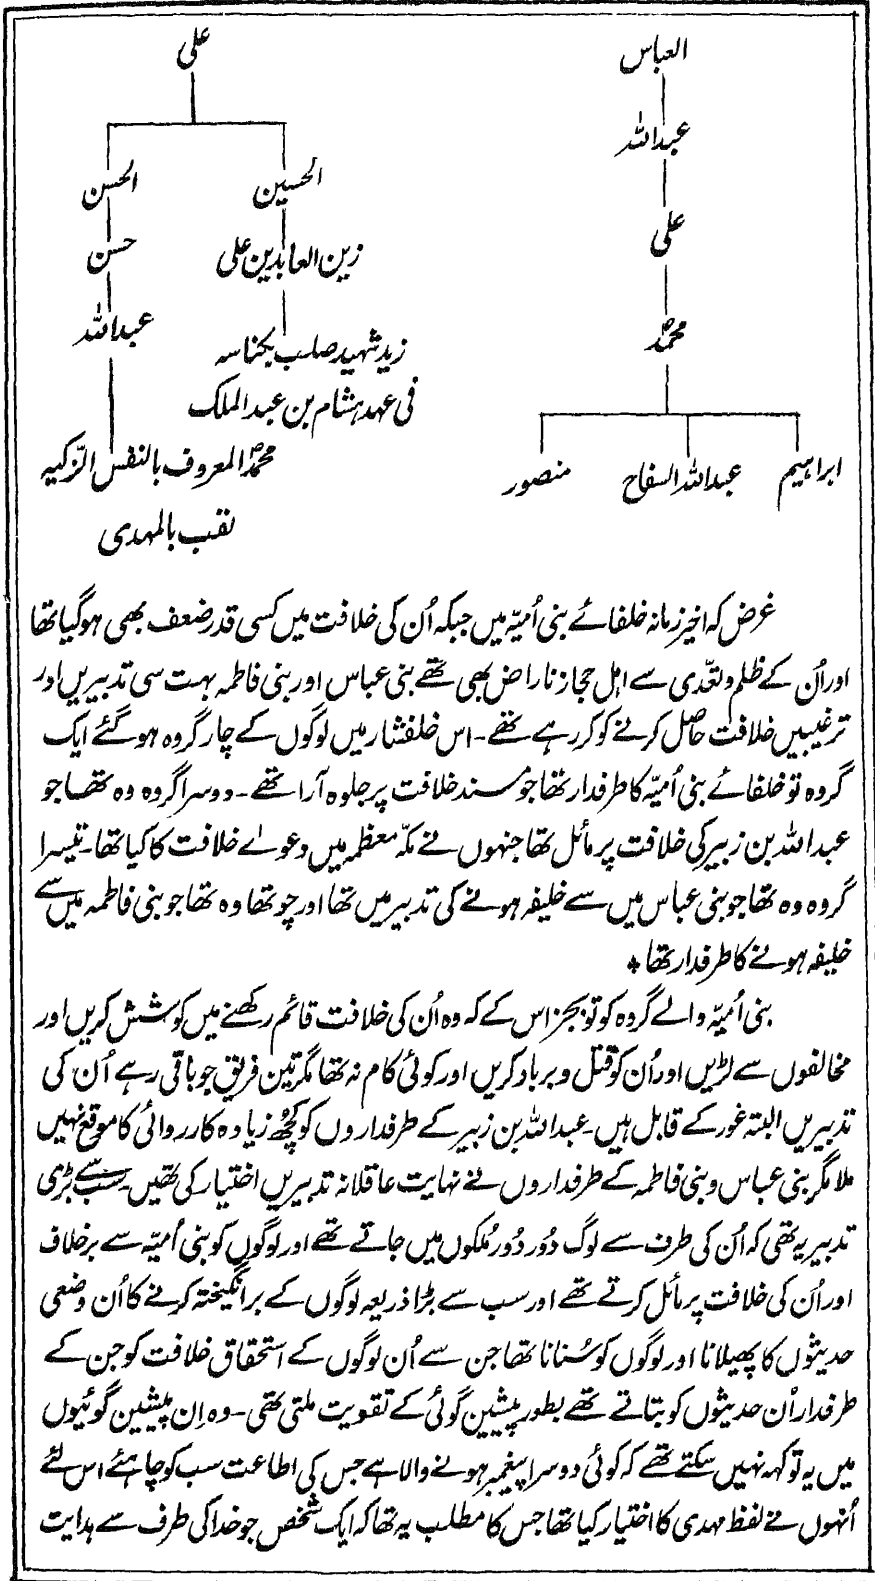 العباس
عبداللہ
علی
محمدؐ
ابراہیم
عبداللہ السفاح
منصور
علی
الحسین
زین العابدین علی
زید شہید صلب بکناسہ
فی عہد ہشام بن عبد الملک
الحسن
حسن
عبداللہ
محمدؐ المعروف بالنفس الزّکیہ
لقب بالمہدی
غرض کہ اخیر زمانہ خلفائے بنی اُمیّہ میں جبکہ اُن کی خلافت میں کسی قدر ضعف بھی ہوگیا تھا
اور اُن کے ظلم و تعّدی سے اہل حجاز ناراض بھی تھے بنی عباس اور بنی فاطمہ بہت سی تدبیریں اور
ترغیبیں خلافت حاصل کرنے کو کر رہے تھے۔ اس خلفشار میں لوگوں کے چار گروہ ہوگئے ایک
گروہ تو خلفائے بنی اُمیّہ کا طرفدار تھا جو مسند خلافت پر جلوہ آرا تھے۔ دوسرا گروہ وہ تھا جو
عبداللہ بن زبیر کی خلافت پر مائل تھا جنہوں نے مکّہ معظمہ میں دعوائے خلافت کا کیا تھا۔ تیسرا
گروہ وہ تھا جو بنی عباس میں سے خلیفہ ہونے کی تدبیر میں تھا اور چوتھا وہ تھا جو بنی فاطمہ میں سے
خلیفہ ہونے کا طرفدار تھا *
بنی اُمیّہ والے گروہ کو تو بجز اس کے کہ وہ اُن کی خلافت قائم رکھنے میں کوشش کریں اور
مخالفوں سے لڑیں اور اُن کو قتل و برباد کریں اور کوئی کام نہ تھا مگر تین فریق جو باقی رہے اُن کی
تدبیریں البتہ غور کے قابل ہیں۔ عبداللہ بن زبیر کے طرفداروں کو کچھ زیادہ کارروائی کا موقع نہیں
ملا مگر بنی عباس و بنی فاطمہ کے طرفداروں نے نہایت عاقلانہ تدبیریں اختیار کی تھیں۔ سب سے بڑی
تدبیر یہ تھی کہ اُن کی طرف سے لوگ دُور دُور مُلکوں میں جاتے تھے اور لوگوں کو بنی اُمیّہ سے برخلاف
اور اُن کی خلافت پر مائل کرتے تھے اور سب سے بڑا ذریعہ لوگوں کے برانگیختہ کرنے کا اُن وضعی
حدیثوں کا پھیلانا اور لوگوں کو سُنانا تھا جن سے اُن لوگوں کے استحقاق خلافت کو جن کے
طرفدار اُن حدیثوں کو بتاتے تھے بطور پیشین گوئی کے تقویت ملتی تھی۔ وہ اِن پیشین گوئیوں
میں یہ تو کہہ نہیں سکتے تھے کہ کوئی دوسرا پیغمبر ہونے والا ہے جس کی اطاعت سب کو چاہئے اس لئے
اُنہوں نے لفظ مہدی کا اختیار کیا تھا جس کا مطلب یہ تھا کہ ایک شخص جو خدا کی طرف سے ہدایت